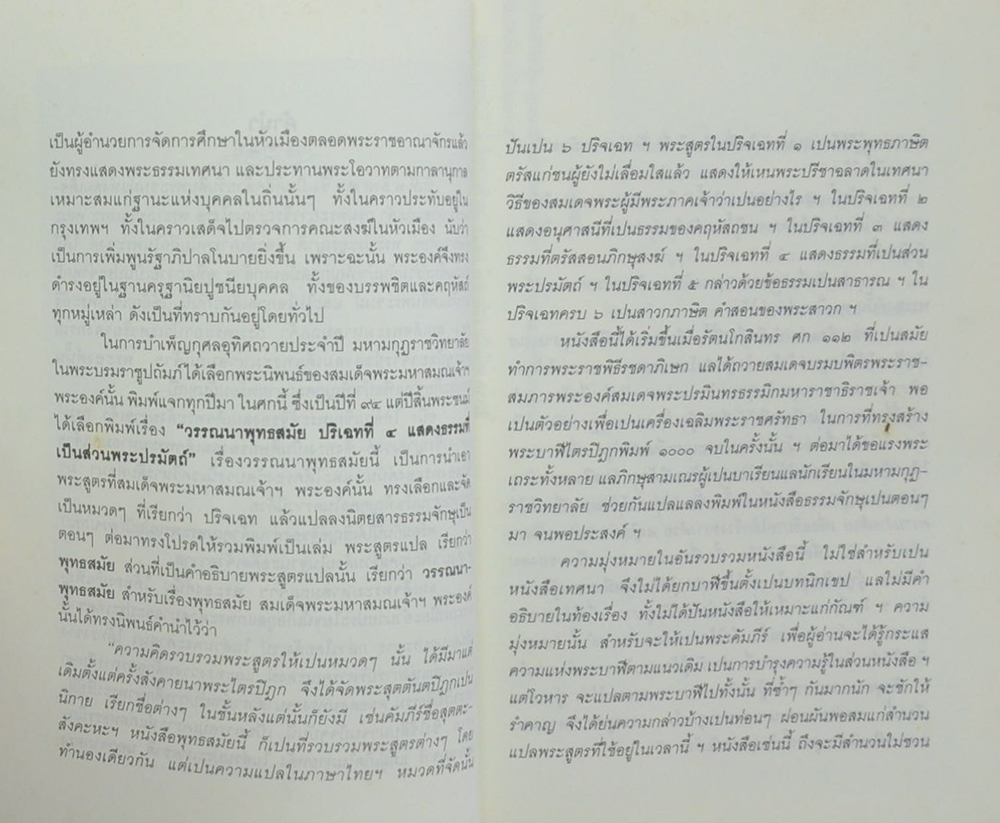 เป็นผู้อำนวยการจัดการศึกษาในหัวเมืองตลอดพระราชอาณาจักรแล้ว
ยังทรงแสดงพระธรรมเทศนา และประทานพระโอวาทตามกาลานุกาล
เหมาะสมแก่ฐานะแห่งบุคคลในถิ่นนั้นๆ ทั้งในคราวประทับอยู่ใน
กรุงเทพฯ ทั้งในคราวเสด็จไปตรวจการคณะสงฆ์ในหัวเมือง นับว่า
เป็นการเพิ่มพูนรัฐาภิปาลโนบายยิ่งขึ้น เพราะฉะนั้น พระองค์จึงทรง
ดำรงอยู่ในฐานครุฐานิยปูชนียบุคคล ทั้งของบรรพชิตและคฤหัสถ์
ทุกหมู่เหล่า ดังเป็นที่ทราบกันอยู่โดยทั่วไป
ในการบำเพ็ญกุศลอุทิศถวายประจำปี มหามกุฏราชวิทยาลัย
ในพระบรมราชูปถัมภ์ได้เลือกพระนิพนธ์ของสมเด็จพระมหาสมณเจ้าฯ
พระองค์นั้น พิมพ์แจกทุกปีมา ในศกนี้ ซึ่งเป็นปีที่ ๙๔ แต่ปีสิ้นพระชนม์
ได้เลือกพิมพ์เรื่อง "วรรณนาพุทธสมัย ปริเฉทที่ ๔ แสดงธรรมที่
เป็นส่วนพระปรมัตถ์" เรื่องวรรณนาพุทธสมัยนี้ เป็นการนำเอา
พระสูตรที่สมเด็จพระมหาสมณเจ้าฯ พระองค์นั้น ทรงเลือกและจัด
เป็นหมวดๆ ที่เรียกว่า ปริจเฉท แล้วแปลลงนิตยสารธรรมจักษุเป็น
ตอนๆ ต่อมาทรงโปรดให้รวมพิมพ์เป็นเล่ม พระสูตรแปล เรียกว่า
พุทธสมัย ส่วนที่เป็นคำอธิบายพระสูตรแปลนั้น เรียกว่า วรรณนา-
พุทธสมัย สำหรับเรื่องพุทธสมัย สมเด็จพระมหาสมณเจ้าฯ พระองค์
นั้นได้ทรงนิพนธ์คำนำไว้ว่า
"ความคิดรวบรวมพระสูตรให้เปนหมวดๆ นั้น ได้มีมาแต่
เดิมตั้งแต่ครั้งสังคายนาพระไตรปิฎก จึงได้จัดพระสุตตันตปิฎกเปน
นิกาย เรียกชื่อต่างๆ ในชั้นหลังแต่นั้นก็ยังมี เช่นคัมภีร์ชื่อสุตตะ-
สังคะหะฯ หนังสือพุทธสมัยนี้ ก็เปนที่รวบรวมพระสูตรต่างๆ โดย
ทำนองเดียวกัน แต่เปนความแปลในภาษาไทยฯ หมวดที่จัดนั้น
ปันเปน ๖ ปริจเฉท ฯ พระสูตรในปริจเฉทที่ ๑ เปนพระพุทธภาษิต
ตรัสแก่ชนผู้ยังไม่เลื่อมใสแล้ว แสดงให้เหนพระปรีชาฉลาดในเทศนา
วิธีของสมเดจพระผู้มีพระภาคเจ้าว่าเปนอย่างไร ฯ ในปริจเฉทที่ ๒
แสดงอนุศาสนีที่เปนธรรมของคฤหัสถชน ฯ ในปริจเฉทที่ ๓ แสดง
ธรรมที่ตรัสสอนภิกษุสงฆ์ ฯ ในปริจเฉทที่ ๔ แสดงธรรมที่เปนส่วน
พระปรมัตถ์ ฯ ในปริจเฉทที่ ๕ กล่าวด้วยข้อธรรมเปนสาธารณ ฯ ใน
ปริจเฉทครบ ๖ เปนสาวกภาษิต คำสอนของพระสาวก ฯ
หนังสือนี้ได้เริ่มขึ้นเมื่อรัตนโกสินทร ศก ๑๑๒ ที่เปนสมัย
ทำการพระราชพิธีรชดาภิเษก แลได้ถวายสมเดจบรมบพิตรพระราช-
สมภารพระองค์สมเดจพระปรมินทรธรรมิกมหาราชาธิราชเจ้า พอ
เปนตัวอย่างเพื่อเปนเครื่องเฉลิมพระราชศรัทธา ในการที่ทรงสร้าง
พระบาฬีไตรปิฎกพิมพ์ ๑๐๐๐ จบในครั้งนั้น ฯ ต่อมาได้ขอแรงพระ
เถระทั้งหลาย แลภิกษุสามเณรผู้เปนบาเรียนแลนักเรียนในมหามกุฏ-
ราชวิทยาลัย ช่วยกันแปลแลลงพิมพ์ในหนังสือธรรมจักษุเปนตอนๆ
มา จนพอประสงค์ ฯ
ความมุ่งหมายในอันรวบรวมหนังสือนี้ ไม่ใช่สำหรับเปน
หนังสือเทศนา จึงไม่ได้ยกบาฬีขึ้นตั้งเปนบทนิกเขป แลไม่มีคำ
อธิบายในท้องเรื่อง ทั้งไม่ได้ปันหนังสือให้เหมาะแก่กัณฑ์ ฯ ความ
มุ่งหมายนั้น สำหรับจะให้เปนพระคัมภีร์ เพื่อผู้อ่านจะได้รู้กระแส
ความแห่งพระบาฬีตามแนวเดิม เปนการบำรุงความรู้ในส่วนหนังสือ ฯ
แต่โวหาร จะแปลตามพระบาฬีไปทั้งนั้น ที่ซ้ำๆ กันมากนัก จะชักให้
รำคาญ จึงได้ย่นความกล่าวบ้างเปนท่อนๆ ผ่อนผันพอสมแก่สำนวน
แปลพระสูตรที่ใช้อยู่ในเวลานี้ ฯ หนังสือเช่นนี้ ถึงจะมีสำนวนไม่ชวน